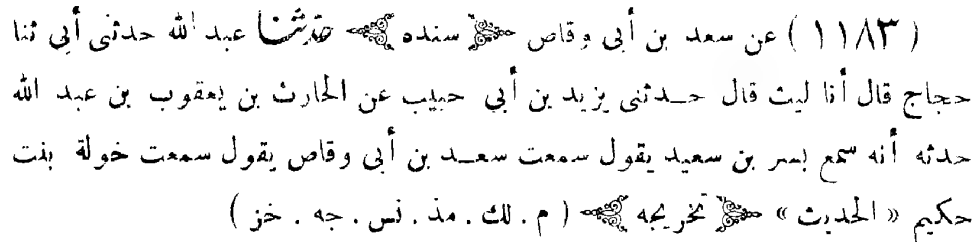 ( ١١٨٣ ) عن سعد بن أبى وقاص ﴿ سنده ﴾ حدّثنا عبد الله حدثنى أبى ثنا
حجاج قال أنا ليث قال حدثنى يزيد بن أبي حبيب عن الحارث بن يعقوب بن عبد الله
حدثه أنه سمع بسر بن سعيد يقول سمعت سعد بن أبى وقاص يقول سمعت خولة بنت
حكيم « الحديث » ﴿ تخريجه ﴾ ( م . لك . مذ . نس . جه . خز )